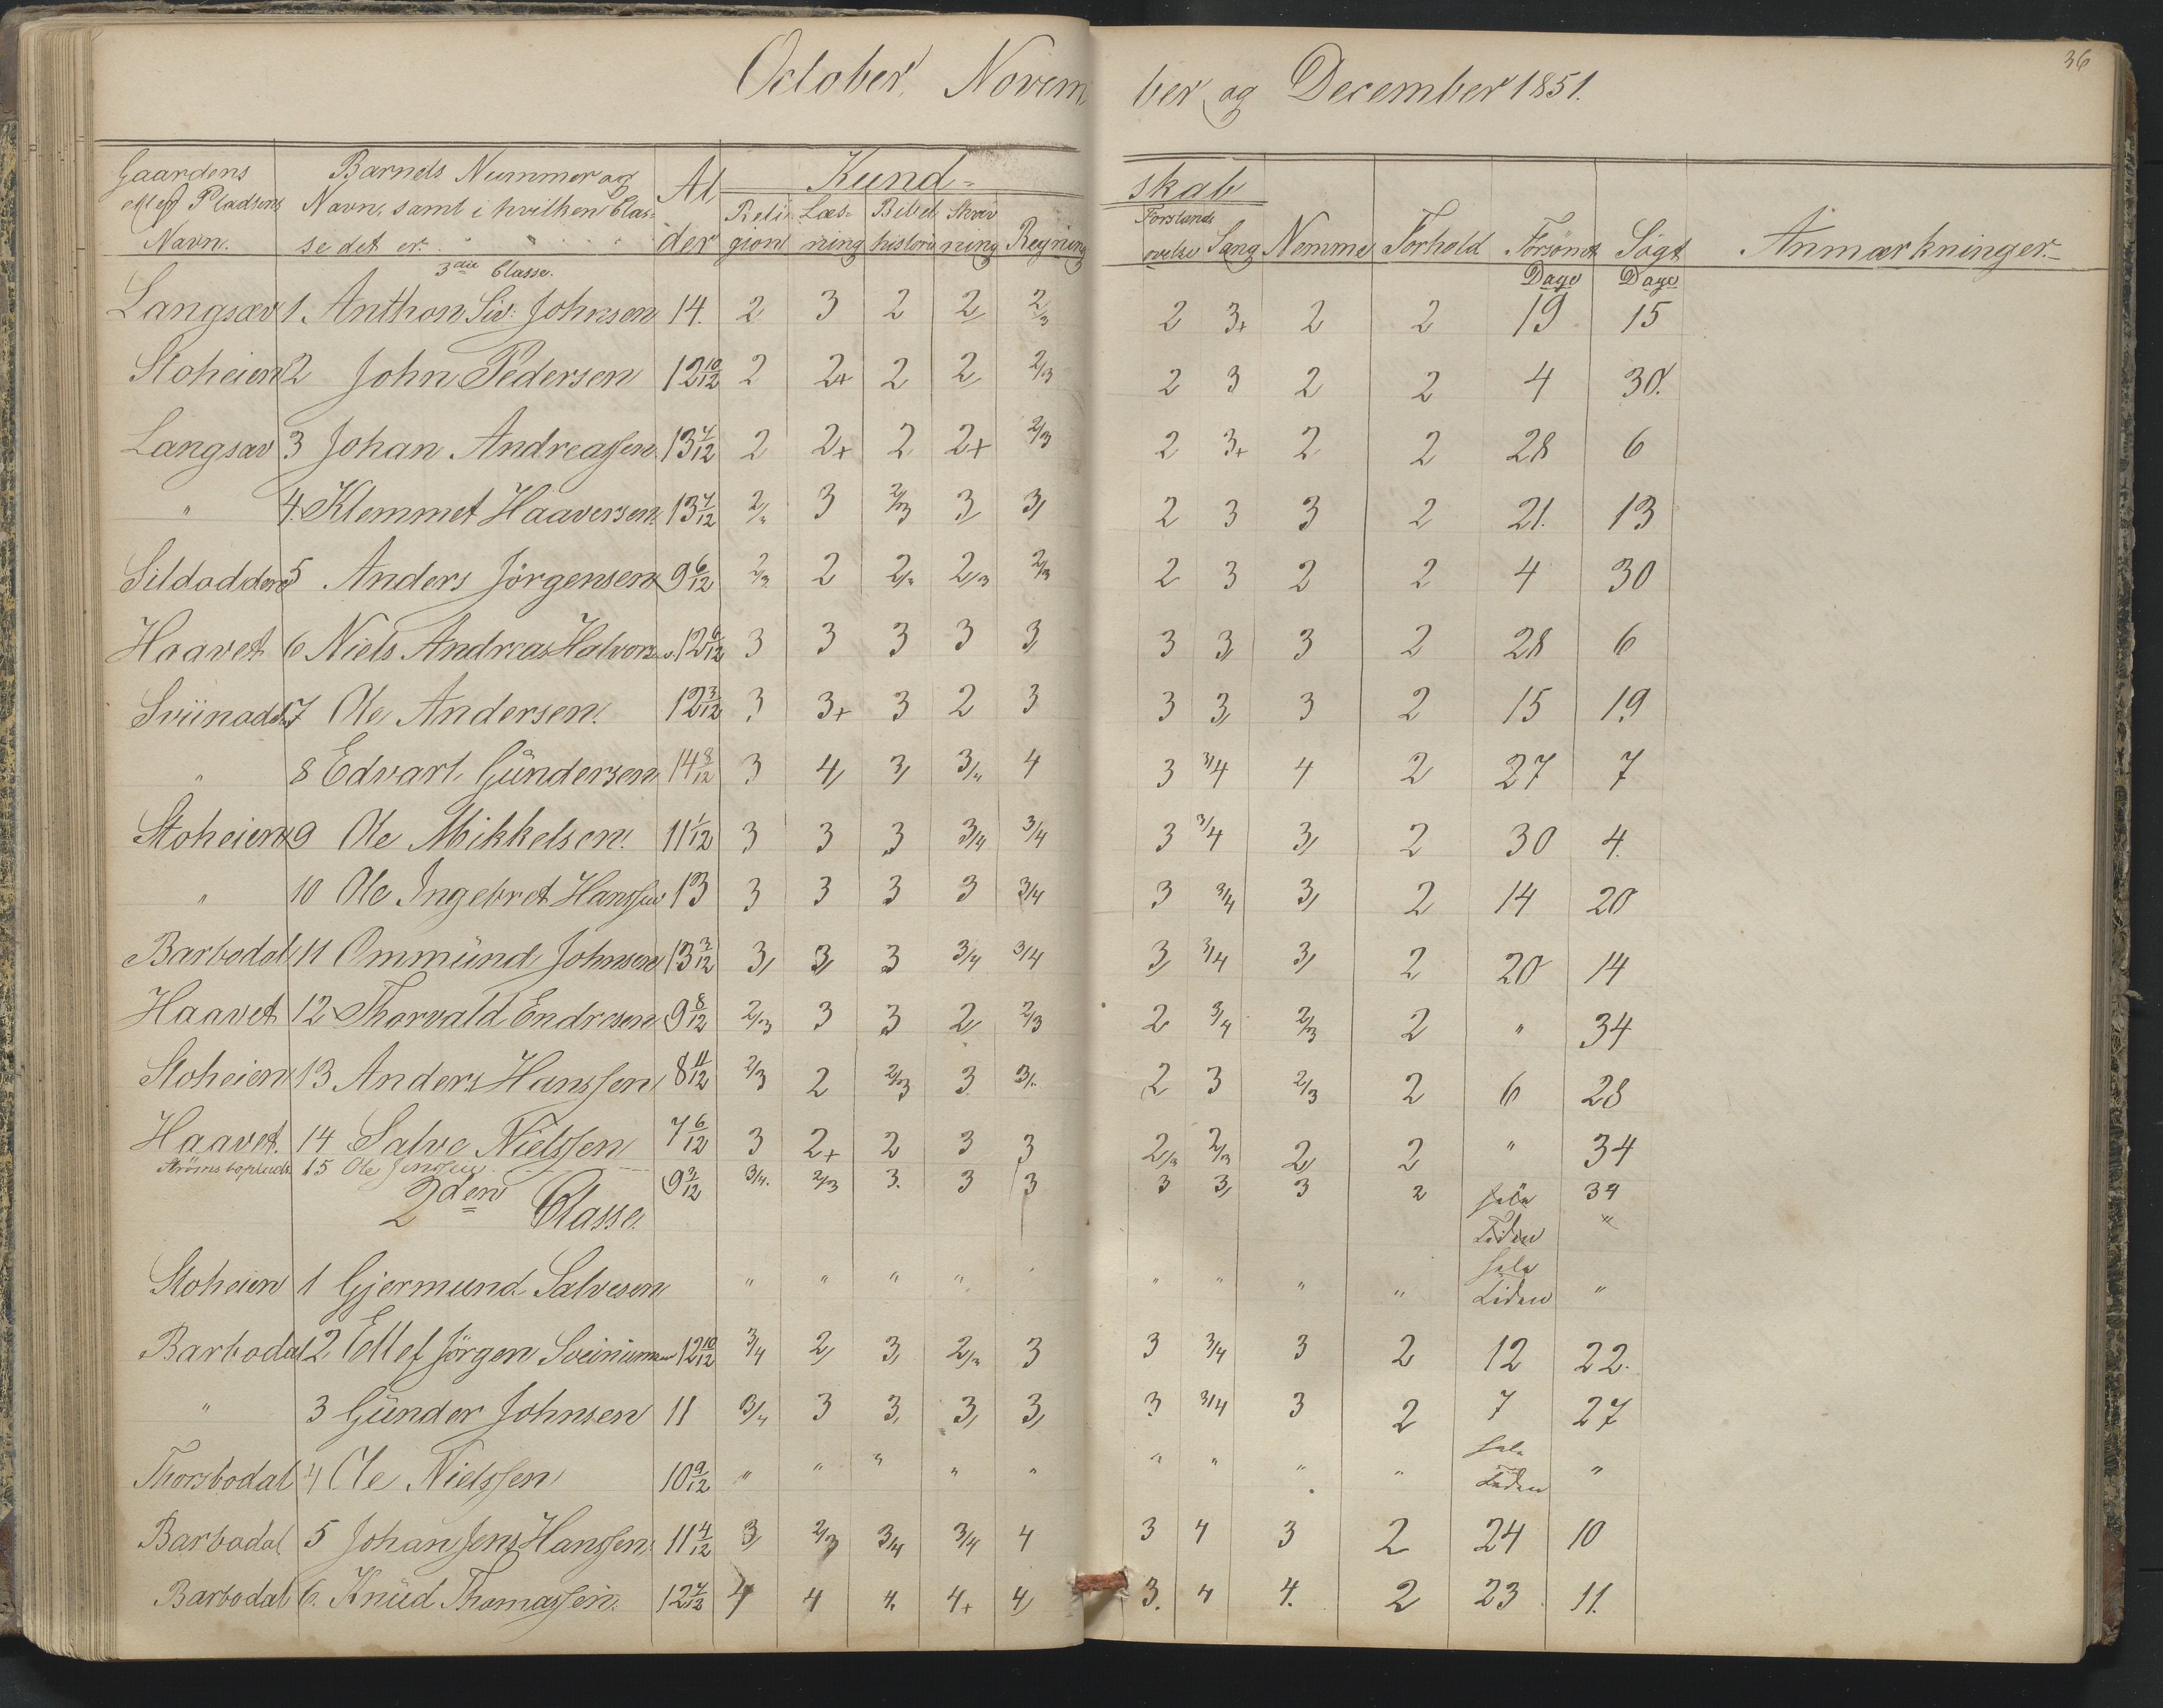 36
October, November og December 1851.
Gaardens eller Pladsens Navn. | Barnets Nummer og Navn, samt i hvilken Classe det er. | Alder | Kundskab | Nemme | Forhold | Forsömt Dage | Sögt Dage | Anmærkninger.
Religion | Læsning | Bibelhistorie | Skrivning | Regning | Forstands ovelse | Sang
3die Classe.
Langsæv 1 Anthon Siv: Johnsen 14. 2 3 2 2, 2/3 2 3+ 2 2 19 15
Stoheien 2 John Pedersen 12 10/12 2 2+ 2 2, 2/3 2 3 2 2 4 30.
Langsæv 3 Johan Andreassen 13 4/12 2 2+ 2 2+ 2/3 2 3+ 2 2 28 6
" 4. Klemmet Haaversen 13 4/12 2/" 3 2/3 3, 3, 2 3 3 2 21. 13
Sildodden 5 Anders Jörgensen 9 6/12 2/3 2 2/" 2/3 2/3 2 3 2 2 4 30
Haavet 6 Niels Andreas Halvors. 12 6/12 3 3 3 3 3, 3 3, 3 2 28 6
Sviinodd. 7 Ole Andersen. 12 3/12 3 3+ 3 2 3 3 3, 3 2 15 19
" 8 Edvart Gündersen 14 8/12 3 4, 3, 3/" 4 3 3/4 4 2 27 7
Stoheien 9 Ole Mikkelsen. 11 1/12 3 3 3 3/4 3/4 3 3/4 3, 2 30 4.
" 10 Ole Ingebret Hanssen 13 3 3 3 3 3/4 3 3/4 3, 2 14 20
Barbodal 11 Ommünd Johnsen 13 3/12 3, 3, 3 3/4 3/4 3, 3/4 3, 2 20 14
Haavet 12 Thorvald Endresen 9 8/12 2/3 3 3 2, 2/3 2 3/4 2/3 2 " 34
Stoheien 13 Anders Hanssen 8 11/12 2/3 2 2/3 3 3/. 2 3 2/3 2 6 28
Haavet. 14 Salve Nielssen 7 6/12 3 2+ 2 3 3 2/3 2/3 2, 2 " 34
15 Ole Jenssen 9 3/12 3/4. 2/3 3. 3 3 3 3, 3 2 hele Tiden 34 "
2den Classe.
Stoheien 1 Gjermund Salvesen " " " " " " " " hele Tiden "
Barbodal 2 Ellef Jörgen 12 10/12 3/4 2, 3, 2/3 3 3 3/4 3 2 12 22.
" 3 Günder Johnsen 11 3/4 3 3, 3, 3, 3 3/4 3 2 7 27
Thorsbodal 4 Ole Nielssen 10 9/12 " " " " " " " " " hele Tiden "
Barbodal 5 Johan Jens Hanssen. 11 4/12 3, 2/3 3/4 3/4 4 3 4 3 2 24 10
Barbodal 6. Knüd Thomassen. 12 4 4 4. 4+ 4, 3. 4 4. 2 23 11.